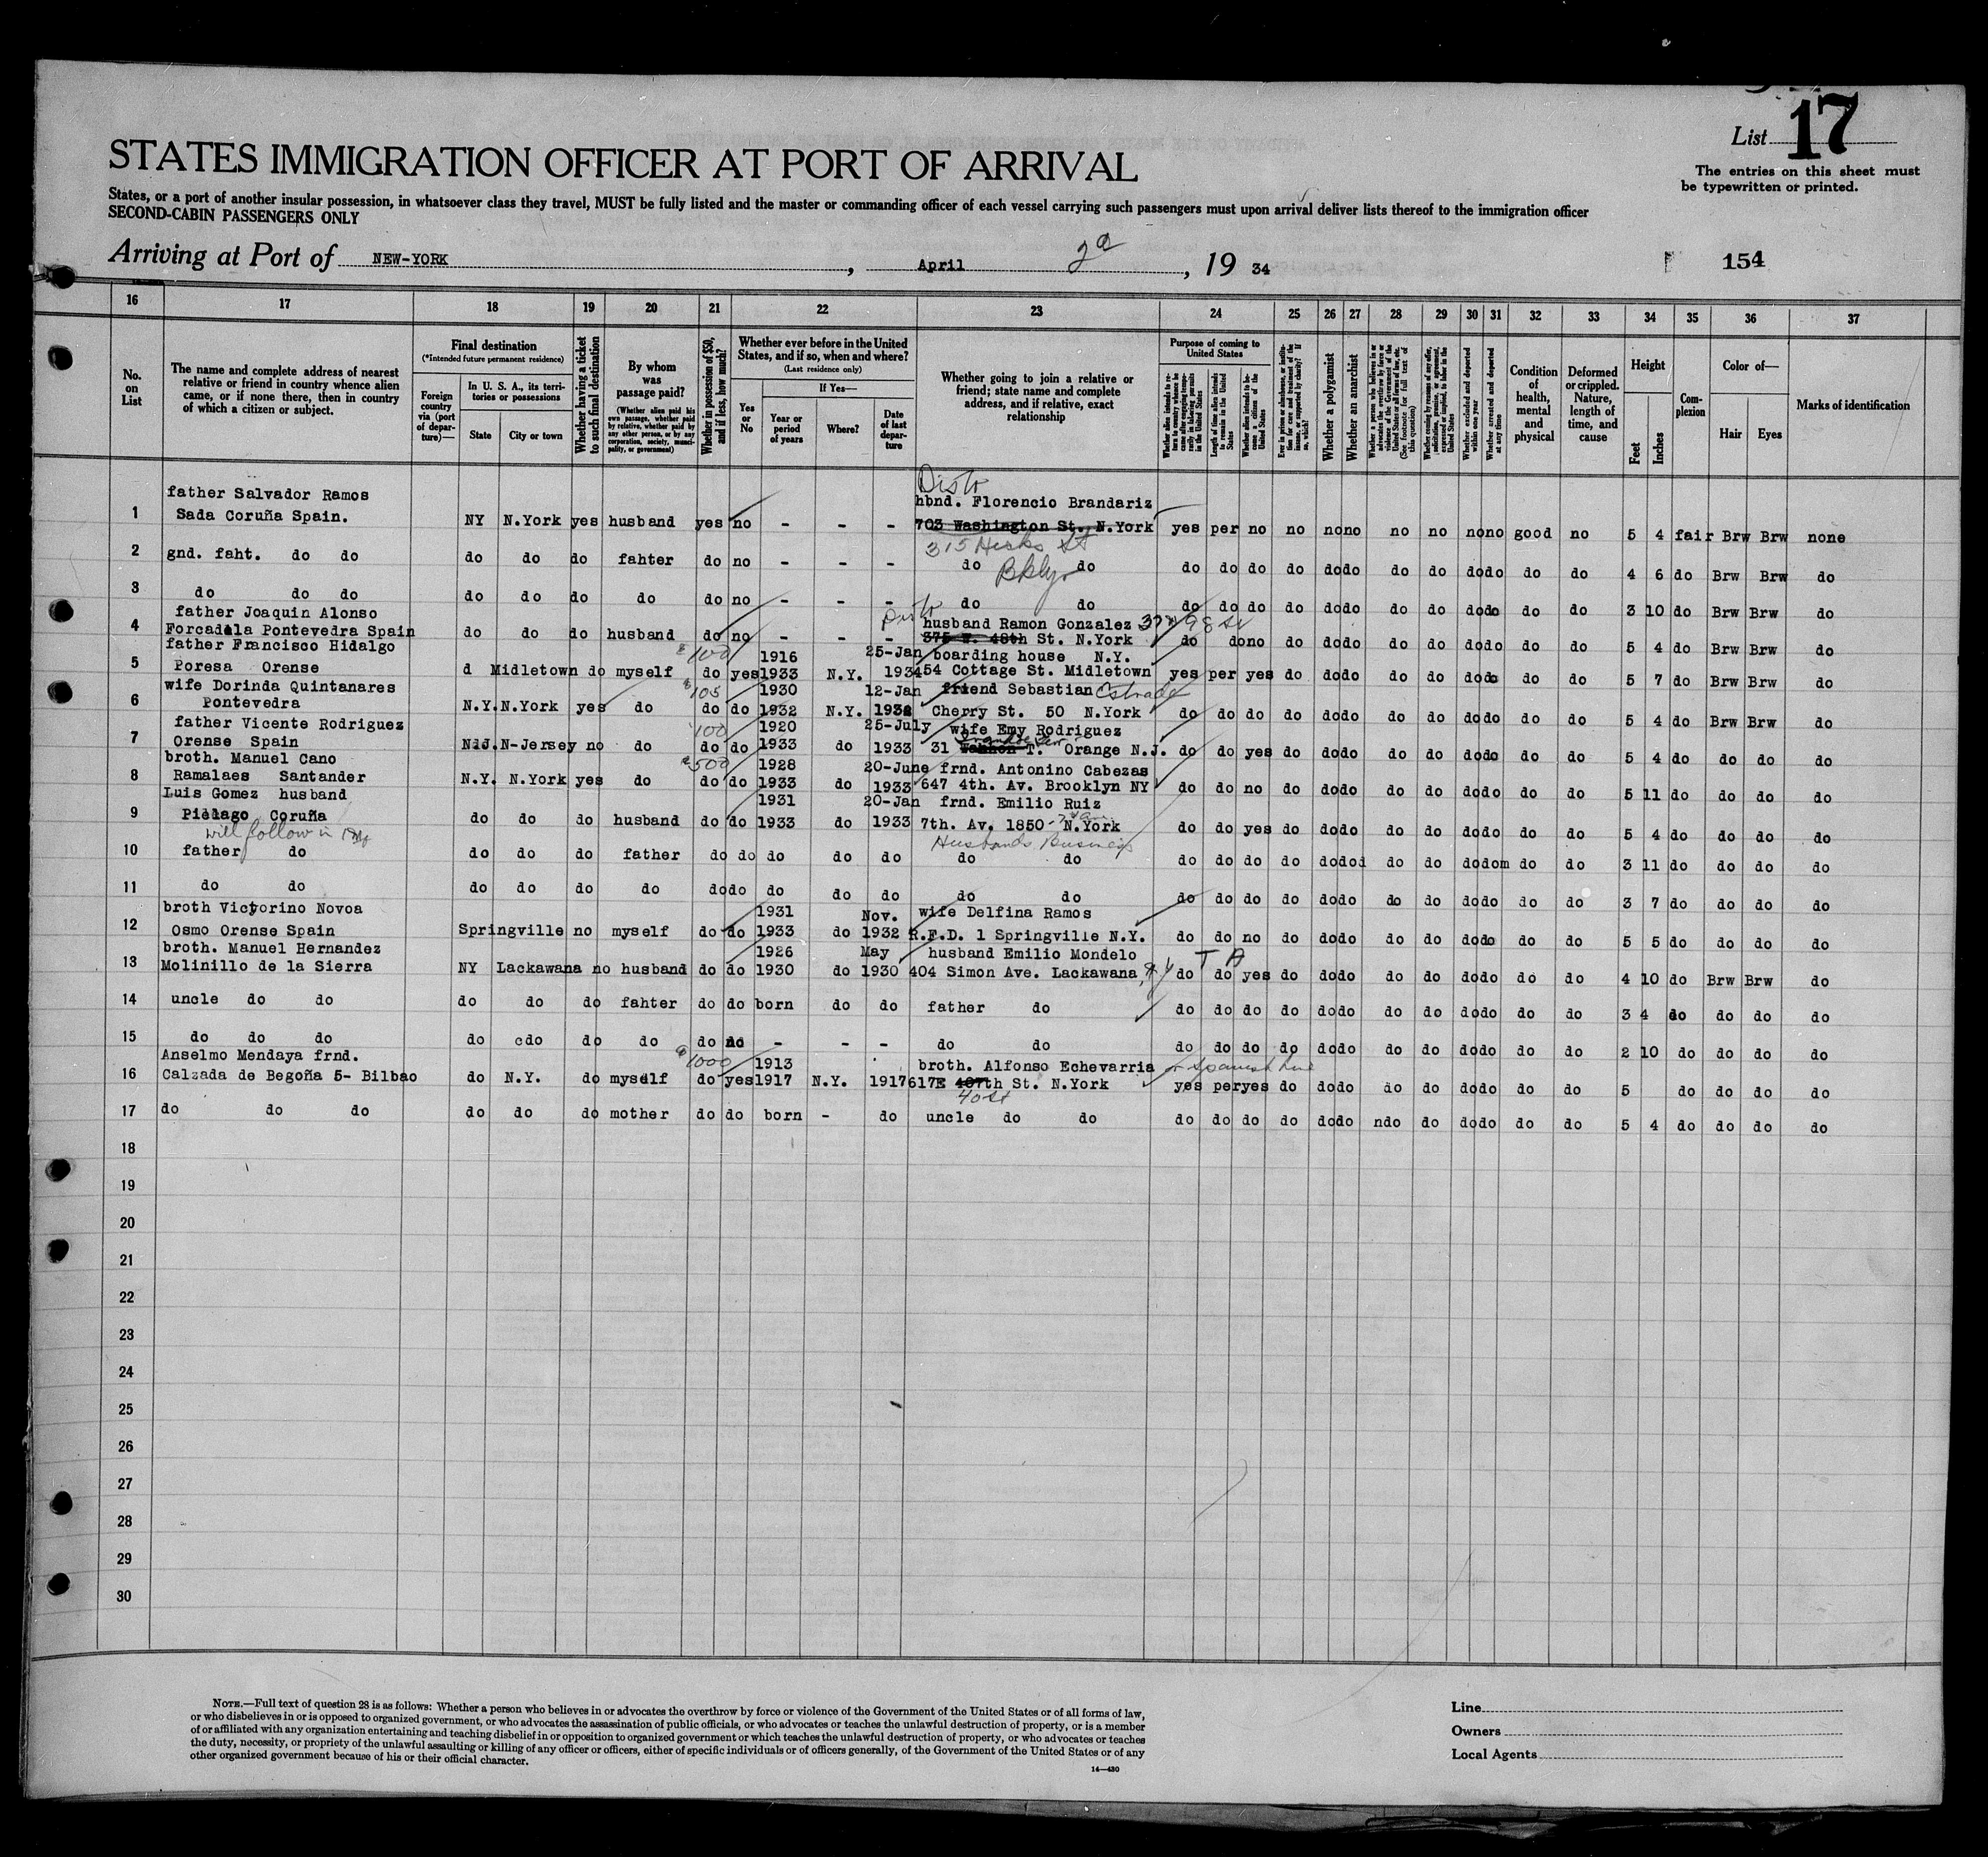 List 17
The entries on this sheet must
be typewritten or printed.
STATES IMMIGRATION OFFICER AT PORT OF ARRIVAL
States, or a port of another insular possession, in whatsoever class they travel, MUST be fully listed and the master or commanding officer of each vessel carrying such passengers must upon arrival deliver lists thereof to the immigration officer
SECOND-CABIN PASSENGERS ONLY
Arriving at Port of NEW-YORK, April, 19 34
154
16 17 18 19 20 21 22 23 24 25 26 27 28 29 30 31 32 33 34 35 36 37
No. on List
The name and complete address of nearest
relative or friend in country whence alien
came, or if none there, then in country
of which a citizen or subject.
Final destination
(*Intended future permanent residence)
Foreign country via (port of departure)—
In U. S. A., its territories or possessions
State City or town
Whether having a ticket to such final destination
By whom was passage paid?
(Whether alien paid his own passage, whether paid by relative, whether paid by any other person, or by any corporation, society, municipality, or government)
Whether in possession of $50, and if less, how much?
Whether ever before in the United
States, and if so, when and where?
(Last residence only)
Yes or No
If Yes—
Year or period of years
Where?
Date of last departure
Whether going to join a relative or
friend; state name and complete
address, and if relative, exact
relationship
Purpose of coming to United States
Length of time alien intends to remain in the United States
Whether alien intends to become a citizen of the United States
Whether a polygamist
Whether an anarchist
(See footnote for full text of this question)
Whether excluded and deported within one year
Whether arrested and deported at any time
Condition of health, mental and physical
Deformed or crippled. Nature, length of time, and cause
Height
Feet Inches
Complexion
Color of—
Hair Eyes
Marks of identification
Disto
father Salvador Ramos hbnd. Florencio Brandariz
1 Sada Coruña Spain. NY N.York yes husband yes no - - - 703 Washington St., N.York yes per no no no no no no no no good no 5 4 fair Brw Brw none
315 Hicks St
2 gnd. faht. do do do do do fahter do no - - - do do do do do do do do do do do do do do 4 6 do Brw Brw do
Bklyn
3 do do do do do do do do no - - - do do do do do do do do do do do do do do 3 10 do Brw Brw do
father Joaquin Alonso husband Ramon Gonzalez
4 Forcadela Pontevedra Spain do do do husband do no - - - 375 W. 48th St. N.York do do no do do do do do do do do do 5 4 do Brw Brw do
father Francisco Hidalgo 100 1916 25-Jan boarding house N.Y.
5 Poresa Orense d Midletown do myself do yes 1933 N.Y. 1934 54 Cottage St. Midletown yes per yes do do do do do do do do do 5 7 do Brw Brw do
wife Dorinda Quintanares 105 1930 12-Jan friend Sebastian Estrade
6 Pontevedra N.Y. N.York yes do do do 1932 N.Y. 1932 Cherry St. 50 N.York do do do do do do do do do do do do 5 4 do Brw Brw do
father Vicente Rodriguez 100 1920 25-July wife Emy Rodriguez
7 Orense Spain N.J. N-Jersey no do do do 1933 do 1933 31 T. Orange N.J. do do yes do do do do do do do do do 5 4 do do do do
broth. Manuel Cano 500 1928 20-June frnd. Antonino Cabezas
8 Ramalaes Santander N.Y. N.York yes do do do 1933 do 1933 647 4th. Av. Brooklyn NY do do no do do do do do do do do do 5 11 do do do do
Luis Gomez husband 1931 20-Jan frnd. Emilio Ruiz
9 Pielago Coruña do do do husband do do 1933 do 1933 7th. Av. 1850- N.York do do yes do do do do do do do do do 5 4 do do do do
will follow in Husbands Business
10 father do do do do father do do do do do do do do do do do do dod do do do dom do do 3 11 do do do do
11 do do do do do do do do do do do do do do do do do do do do do do do do do 3 7 do do do do
broth Victorino Novoa 1931 Nov. wife Delfina Ramos
12 Osmo Orense Spain Springville no myself do do 1933 do 1932 R.F.D. 1 Springville N.Y. do do no do do do do do do do do do 5 5 do do do do
broth. Manuel Hernandez 1926 May husband Emilio Mondelo T A
13 Molinillo de la Sierra NY Lackawana no husband do do 1930 do 1930 404 Simon Ave. Lackawana, N.Y do do yes do do do do do do do do do 4 10 do Brw Brw do
14 uncle do do do do do fahter do do born do do father do do do do do do do do do do do do do 3 4 do do do do
15 do do do do cdo do do do no - - - do do do do do do do do do do do do do do 2 10 do do do do
Anselmo Mendaya frnd. 1000 1913 broth. Alfonso Echevarria or Spanish Line
16 Calzada de Begoña 5- Bilbao do N.Y. do myself do yes 1917 N.Y. 1917 617E 407th St. N.York yes per yes do do do do do do do do do 5 do do do do
40 St
17 do do do do do do mother do do born - do uncle do do do do do do do do ndo do do do do do 5 4 do do do do
18
19
20
21
22
23
24
25
26
27
28
29
30
NOTE.—Full text of question 28 is as follows: Whether a person who believes in or advocates the overthrow by force or violence of the Government of the United States or of all forms of law,
or who disbelieves in or is opposed to organized government, or who advocates the assassination of public officials, or who advocates or teaches the unlawful destruction of property, or is a member
of or affiliated with any organization entertaining and teaching disbelief in or opposition to organized government or which teaches the unlawful destruction of property, or who advocates or teaches
the duty, necessity, or propriety of the unlawful assaulting or killing of any officer or officers, either of specific individuals or of officers generally, of the Government of the United States or of any
other organized government because of his or their official character.
14—430
Line
Owners
Local Agents